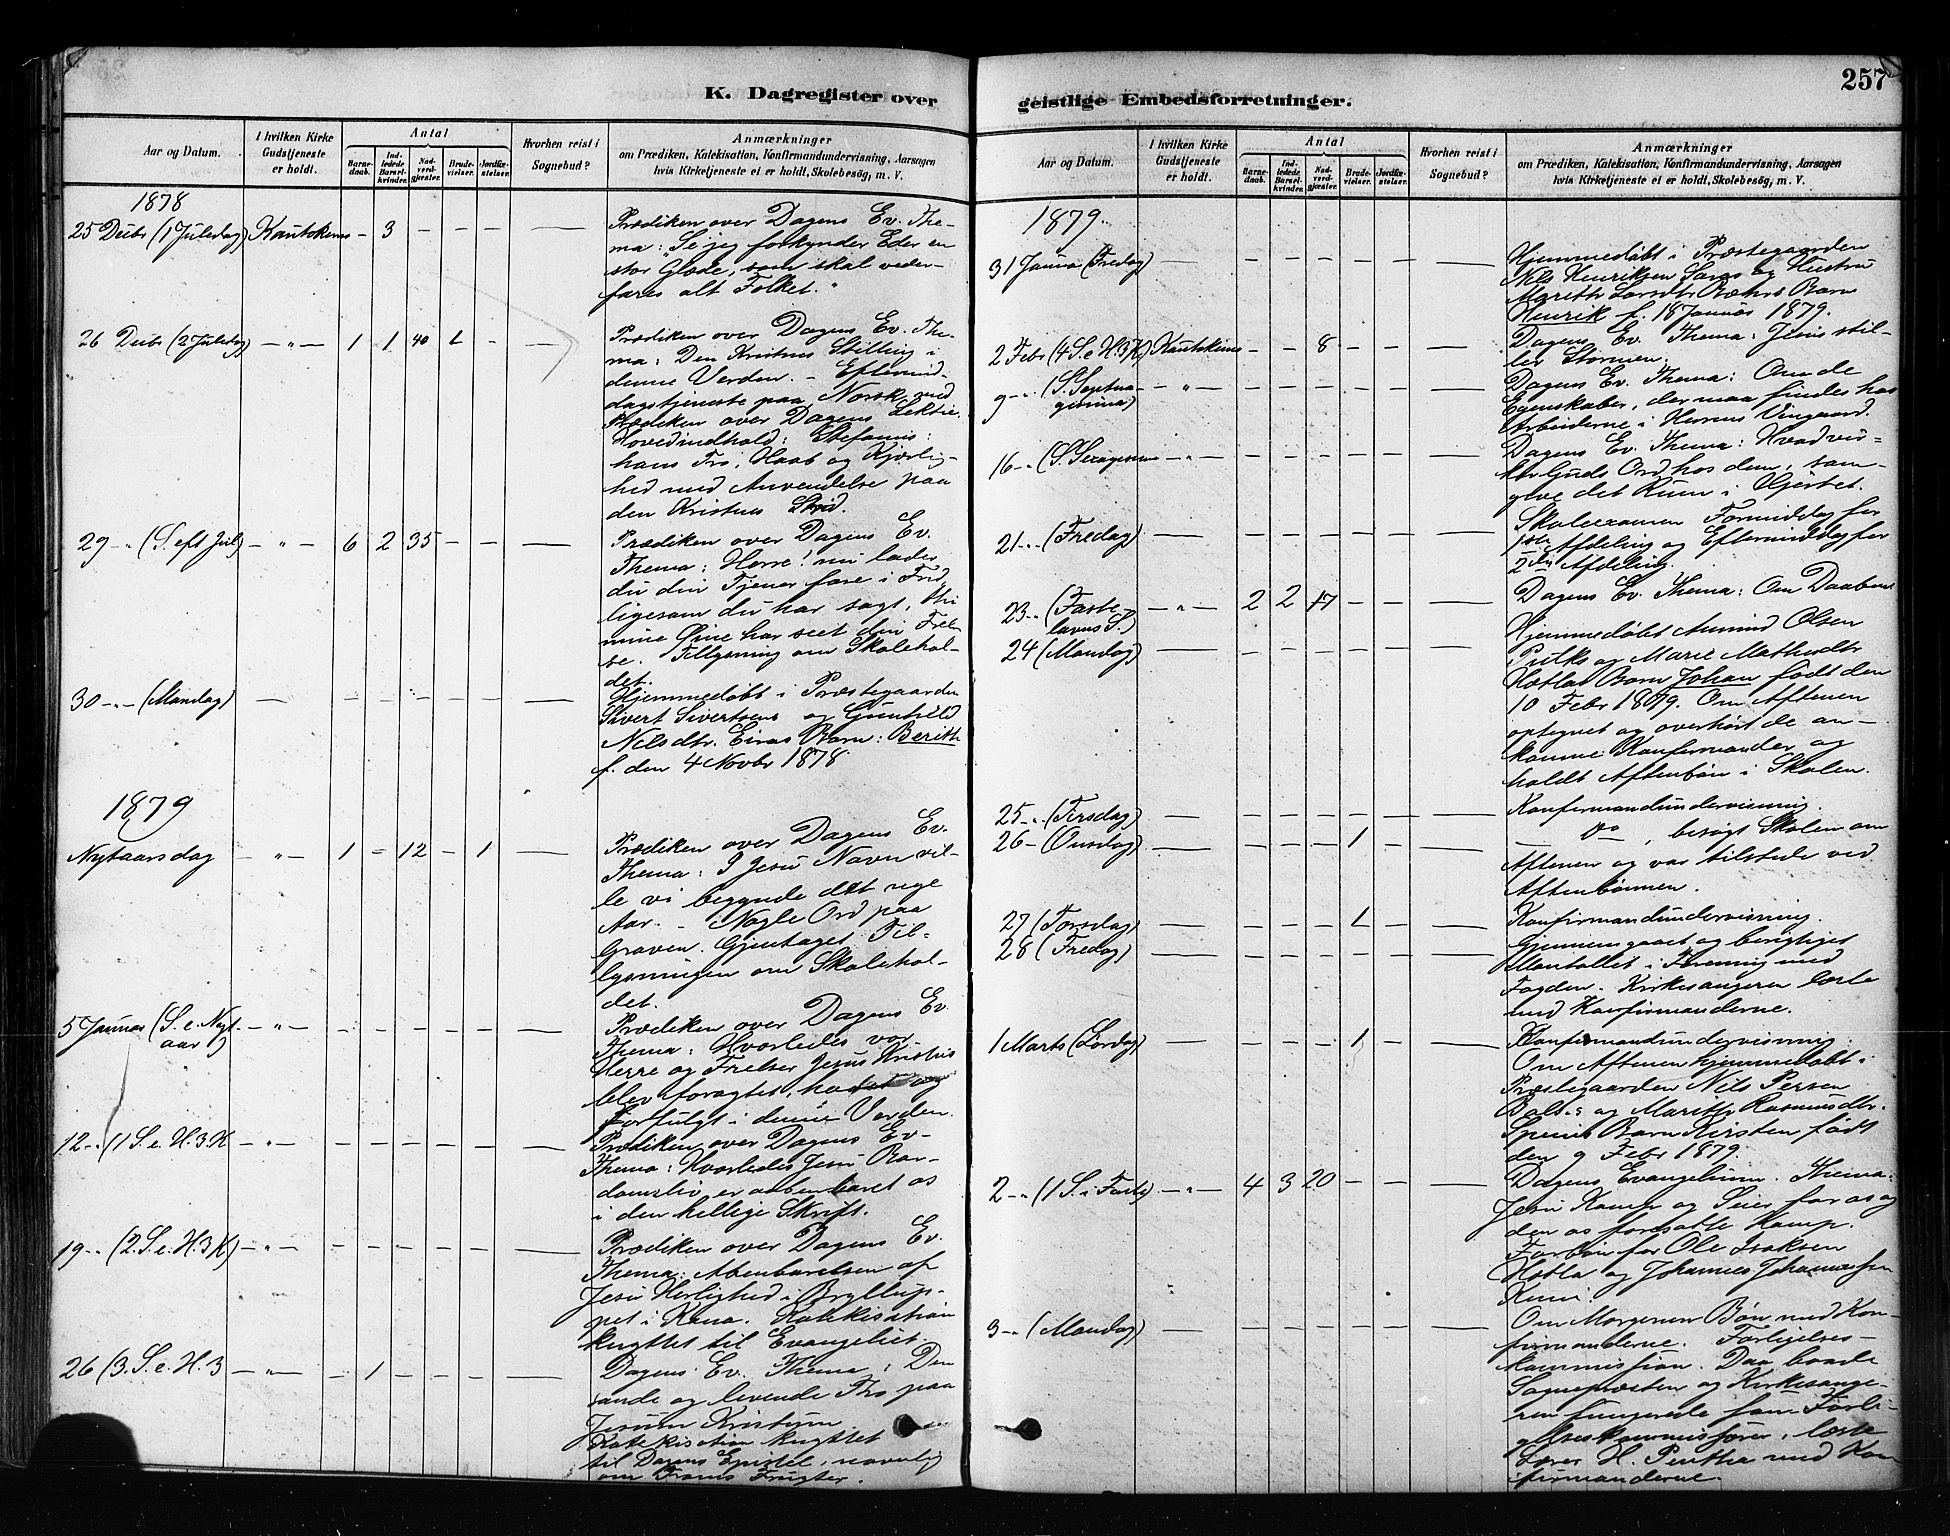 K. Dagregister over
Aar og Datum.
I hvilken Kirke Gudstjeneste er holdt.
Antal
Barnedaab.
Indledede Barselkvinder.
Nadverdgjester.
Brudevielser.
Jordfæstelser.
Hvorhen reist i Sognebud?
Anmærkninger
om Prædiken, Katekisation, Konfirmandundervisning, Aarsagen
hvis Kirketjeneste ei er holdt, Skolebesøg, m. V.
1878
25 Decbr (1 Juledag) Kautokeino - 3 - - - -
Prædiken over Dagens Ev. The-
ma: "Se jeg forkynder Eder en
stor Glæde, som skal veder-
fares alt Folket."
26 Decbr (2 Juledag) - " - 1 1 40 1 - -
Prædiken over Dagens Ev. The-
ma: Den Kristnes Stilling i
denne Verden. - Eftermid-
dagstjeneste paa Norsk med
Prædiken over Dagens Lektie.
Hovedindhold: Stefanus:
hans Tro, Haab og Kjærlig-
hed med Anvendelse paa
den Kristnes Strid.
29 - " (S. eft Jul) - " - 6 2 35 - - -
Prædiken over Dagens Ev.
Thema: Herre! nu lader
du din Tjener fare i Fred,
ligesom du har sagt, thi
mine Øine har seet din Frel-
se. Tillysning om Skolehol-
det.
30 - " - (Mandag) - - - - - - -
Hjemmedøbt i Præstegaarden
Sivert Sivertsens og Gunhild
Nilsdtr. Eiras Barn: Berith
f. den 4 Novbr 1878
1879
Nytaarsdag - " - 1 - 12 - 1 -
Prædiken over Dagens Ev.
Thema: I Jesu Navn vil-
le vi begynde det nye
Aar. - Nogle Ord paa
Graven. Gjentaget Til-
lysningen om Skolehol-
det.
5 Januar (S. e. Nyt-
aar) - " - - - - - - -
Prædiken over Dagens Ev.
Thema: Hvorledes vor
Herre og Frelser Jesus Kristus
blev foragtet, hadet og
forfulgt i denne Verden.
12 - " (1 S. e. H. 3. K - " - - - - - - -
Prædiken over Dagens Ev-
Thema: Hvorledes Jesu Bar-
domsliv er aabenbaret os
i den hellige Skrift.
19 - " (2. S. e. H. 3 K) - " - - - - - - -
Prædiken over Dagens Ev.
Thema: Abenbarelsen af
Jesu Herlighed i Bryllup-
pet i Kana. Katekisation
knyttet til Evangeliet.
26 (3. S. e. H. 3 - " - - 1 - - - -
Dagens Ev. Thema: Den
sande og levende Tro paa
Jesum Kristum.
Katekisation knyttet
til Dagens Epistel, navnlig
om Troens Frugter.
geistlige Embedsforretninger.
257
Aar og Datum.
I hvilken Kirke Gudstjeneste er holdt.
Antal
Barnedaab.
Indledede Barselkvinder.
Nadverdgjester.
Brudevielser.
Jordfæstelser.
Hvorhen reist i Sognebud?
Anmærkninger
om Prædiken, Katekisation, Konfirmandundervisning, Aarsagen
hvis Kirketjeneste ei er holdt, Skolebesøg, m. V.
1879.
31 Janua (Fredag) - - - - - - -
Hjemmedøbt i Præstegaarden
Nils Henriksen Saras og Hustru
Marith Larsdtr Bæhrs Barn
Henrik f. 18 Januar 1879.
2 Febr (4 S. e H. 3 K) Kautokeino - - 8 - - -
Dagens Ev. Thema: Jesus stil-
ler Stormen.
9 - " (S. Septua-
gesima) - " - - - - - - -
Dagens Ev. Thema: Om de
Egenskaber, der maa findes hos
Arbeiderne i Herrens Vingaard.
16 - " (S. Sexagesima - " - - - - - - -
Dagens Ev. Thema: Hvad vir-
ker Guds Ord hos dem, som
give det Rum i Hjertet.
21 - " (Fredag) - - - - - - -
Skoleexamen Formiddag for
1ste Afdeling og Eftermiddag for
2den Afdeling.
23 - " (Faste-
lavns S.) - " - 2 2 17 - - -
Dagens Ev. Thema: Om Daaben
24 (Mandag) - - - - - - -
Hjemmedøbt Amund Olsen
Pulks og Marie Mathisdtr
Hætlas Barn Johan født den
10 Febr 1879. Om Aftenen
optegnet og overhørt de an-
komne Konfirmander og
holdt Aftenbøn i Skolen.
25 - " (Tirsdag) - - - - - - -
Konfirmandundervisning.
26 - (Onsdag) - - - - 1 - -
- Do -, besøgt Skolen om
Aftenen og var tilstede ved
Aftenbønnen.
27 (Torsdag) - - - - 1 - -
Konfirmandundervisning.
28 (Fredag) - - - - - - -
Gjennemgaaet og berigtiget
Mantallet i Forening med
Fogden. Kirkesangeren læste
med Konfirmanderne.
1 Marts (Lørdag) - - - - 1 - -
Konfirmandundervisning
Om Aftenen hjemmedøbt i
Præstegaarden Nils Persen
Bals: og Marith Rasmusdtr.
Speins Barn Kirsten født
den 9 Febr 1879.
2 - " (1 S. i Faste) - " - 4 3 20 - - -
Dagens Evangelium. Thema:
Jesu Kamp og Seier for os og
den os foresatte Kamp.
Forbøn for Ole Isaksen
Hætla og Johannes Johannessen
3 - " (Mandag) - - - - - - -
Om Morgenen Bøn med Kon-
firmanderne. Forligelses-
kommission. Daa baade
Sognepræsten og Kirkesange-
ren fungerede som Forli-
gelseskommissærer, læste
Lærer H. Pentha med Kon
firmanderne.